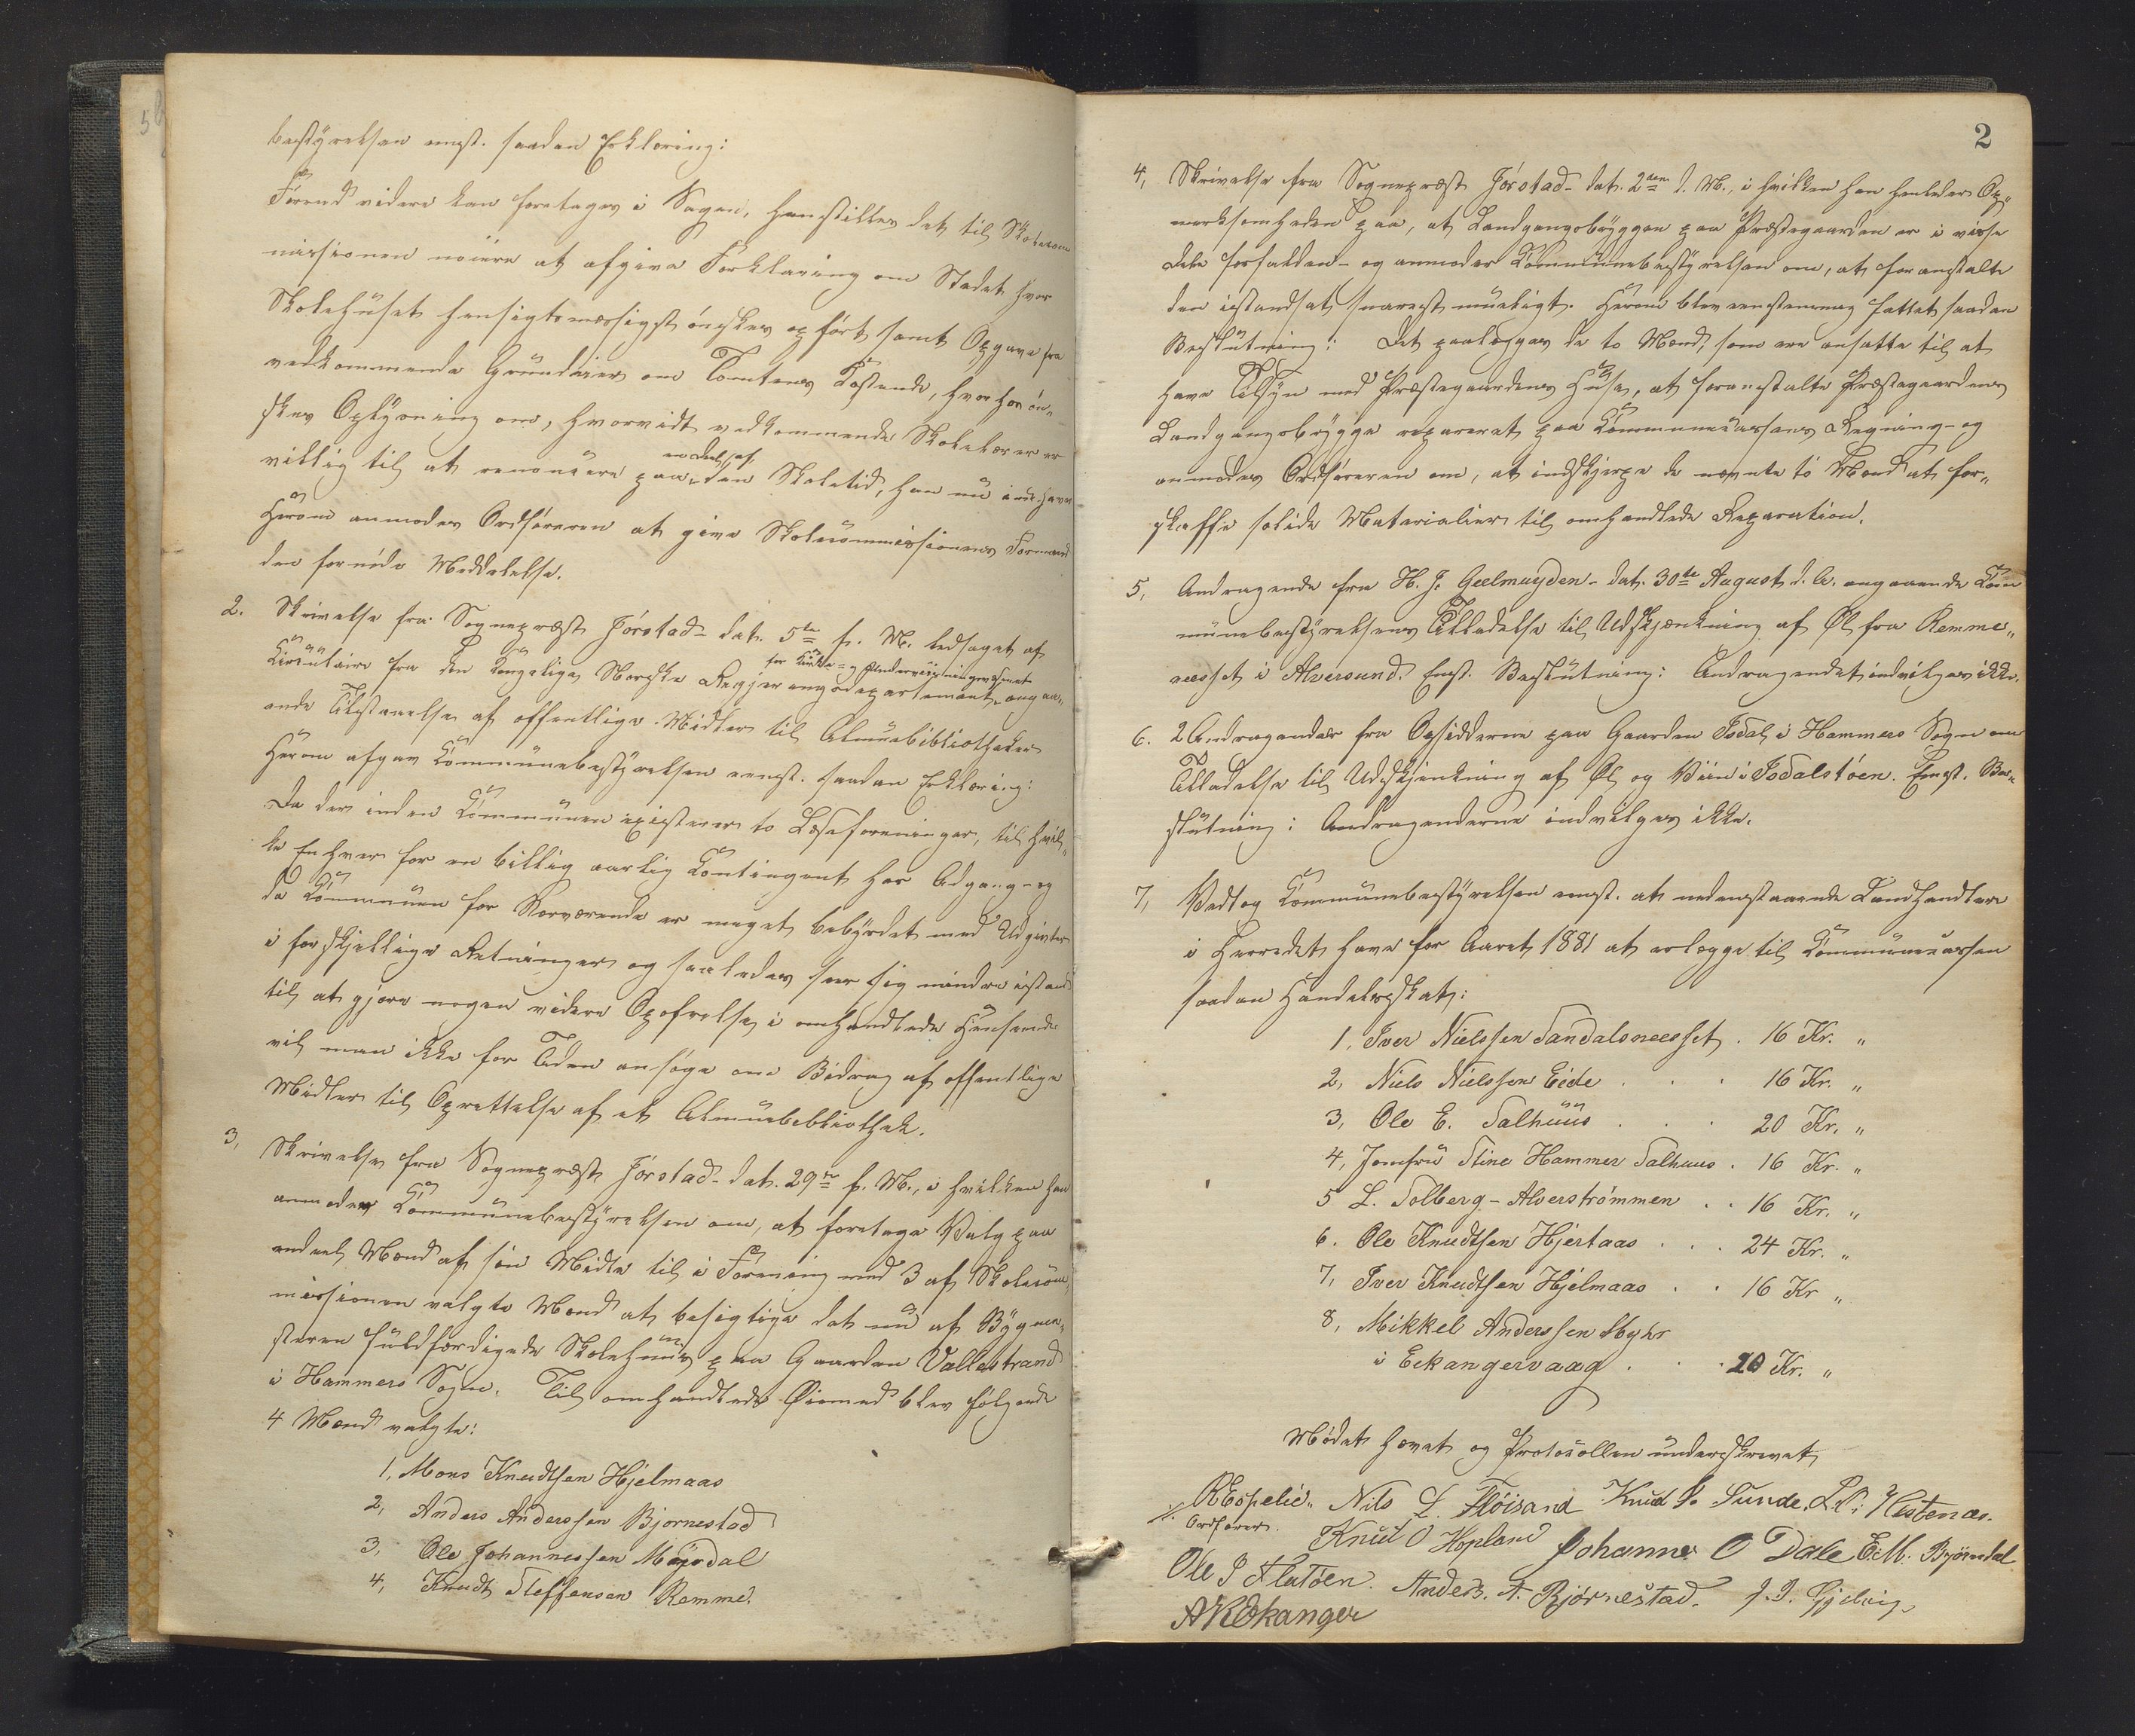 bestyrelsen enst. saadan Erklæring:
Førend videre kan foretages i Sagen, henstilles det til Skolecom
missionen nöiere at afgive Forklaring om Stedet hvor
Skolehuset hensigtsmæssigst önskes opfört samt Opgave fra
vedkommende Grundeier om Tomtens Kostende, hvorhos ön-
skes Oplysning om, hvorvidt vedkommende Skolelærer er
villig til at renoncere paa en Deel af den Skoletid, han nu indehaver
Herom anmodes Ordföreren at give Skolecommissionens Formand
den fornödne Meddelelse.
2. Skrivelse fra Sognepræst Jörstad dat. 5te f. M. ledsaget af
Circulaire fra den kongelige Norske Regjeringsdepartement for Kirke- og Undervisningsvæsenet angaa-
ende Tilstaaelse af offentlige Midler til Almuebibliotheker
Herom afgav Kommunebestyrelsen eenst. saadan Erklæring:
Da der inden Kommunen existerer to Læseforeninger, til hvil-
ke Enhver for en billig aarlig Contingent har Adgang og
da Kommunen for Nærværende er meget bebyrdet med Udgivter
i forskjellige Retninger og saaledes ser sig mindre istand
til at gjøre nogen videre Opofrelse i omhandlede Henseende
vil man ikke for Tiden ansöge om Bidrag af offentlige
Midler til Oprettelse af et Almuebibliothek.
3, Skrivelse fra Sognepræst Jörstad dat. 29de f. M., i hvilken han
anmoder Kommunebestyrelsen om, at foretage Valg paa
endeel Mænd af sin Midte til i Forening med 3 af Skolecom
missionen valgte Mænd at besigtige det nu af Bygme-
steren fuldfærdigede Skolehuus paa Gaarden Vallestrand
i Hammers Sogn. Til omhandlede Øiemed blev følgende
4 Mænd valgte:
1, Mons Knudtsen Hjelmaas
2, Anders Anderssen Bjornestad
3, Ole Johannessen Mördal
4, Knudt Steffensen Remme.
2
4, Skrivelse fra Sognepræst Jórstad dat. 2den d. M., i hvilken han henleder Op-
merksomheden paa, at Landgangsbryggen paa Præstegaarden er i visse
Dele forfalden og anmoder Kommunebestyrelsen om, at foranstalte
den istandsat snarest mueligt. Herom blev eenstemmig fattet saadan
Beslutning: Det paalægges de to Mænd, som ere ansatte til at
have Tilsyn med Præstegaardens Huse, at foranstalte Præstegaardens
Landgangsbrygge repareret paa Kommunecassens Regning og
anmodes Ordföreren om, at indskjærpe de nævnte to Mænd at for-
skaffe solide Materialier til omhandlede Reparation.
5, Andragende fra H. J. Geelmuyden dat. 30te August d. A. angaaende Kom
munebestyrelsens Tilladelse til Udskjænkning af Øl fra Remme-
neesset i Alversund. Enst. Beslutning: Andragendet indvilges ikke.
6. 2 Andragender fra Opsidderne paa Gaarden Isdal i Hammers Sogn om
Tilladelse til Udskjenkning af Øl og Viin i Isdalstóen. Eenst. Be-
slutning: Andragenderne indvilges ikke.
7, Vedtog Kommunebestyrelsen enst. at nedenstaaende Landhandlere
i Herredet have for Aaret 1881 at erlægge til Kommunecassen
saadan Handelsskat:
1, Iver Nielssen Sandalsneesset . 16 Kr. "
2, Niels Nielssen Eide . . . 16 Kr. "
3, Ole E. Salhuus . . . 20 Kr. "
4, Jomfru Stine Hammer Salhuus . 16 Kr. "
5 L. Solberg - Alverströmmen . . 16 Kr. "
6. Ole Knudtsen Hjertaas . . . 24 Kr. "
7, Iver Knudtsen Hjelmaas . . 16 Kr "
8, Mikkel Anderssen Myhr
i Eekangervaag . . . 20 Kr. "
Mödet hævet og Protocollen underskrevet
Nils L. Flöisand Knud J. Sunde.
Ordförer. Knud O Hopland Johannes O Dale E. M. Bjørndal
Ole J Flatöen. Anders. A. Bjørnestad.
A K Ekanger